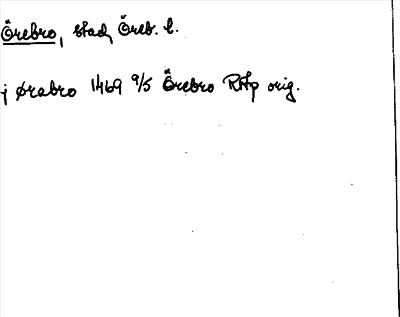 Örebro, stad, Öreb. l.
j Ørabro 1469 9/5 Örebro RAp orig.